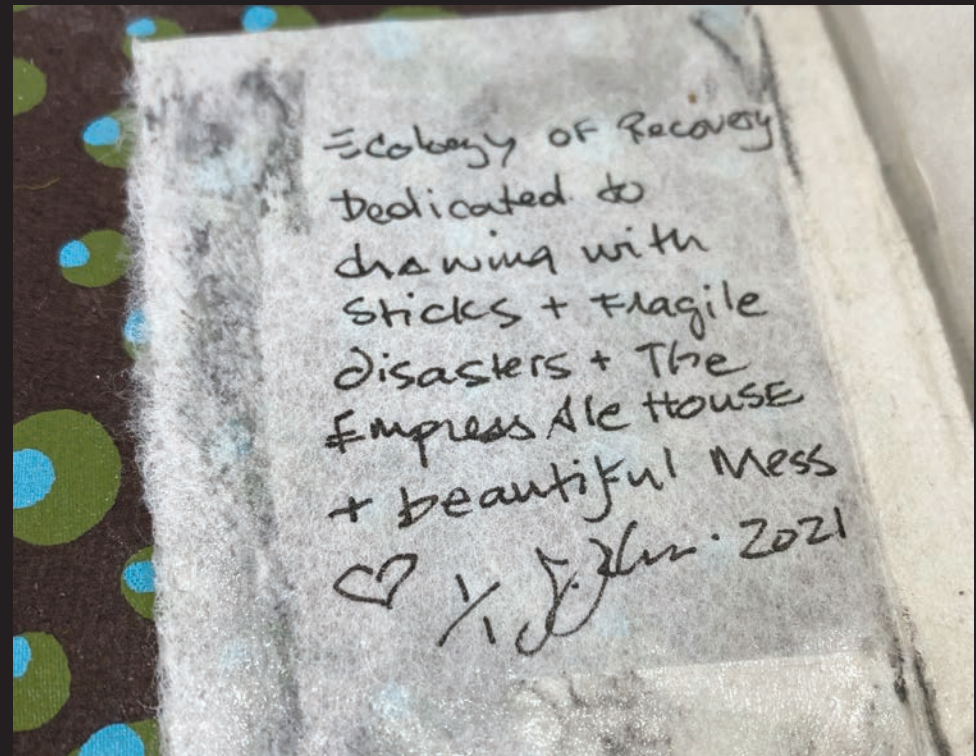 Ecology of Recovery
Dedicated to
drawing with
Sticks + Fragile
disasters + The
Empress Ale House
+ beautiful Mess
♡ 1/1 2021